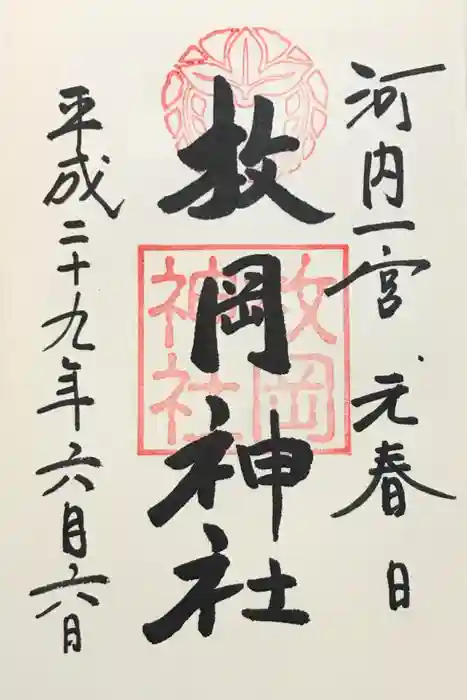 河内一宮、元春日
枚岡神社
枚岡
神社
平成二十九年六月六日